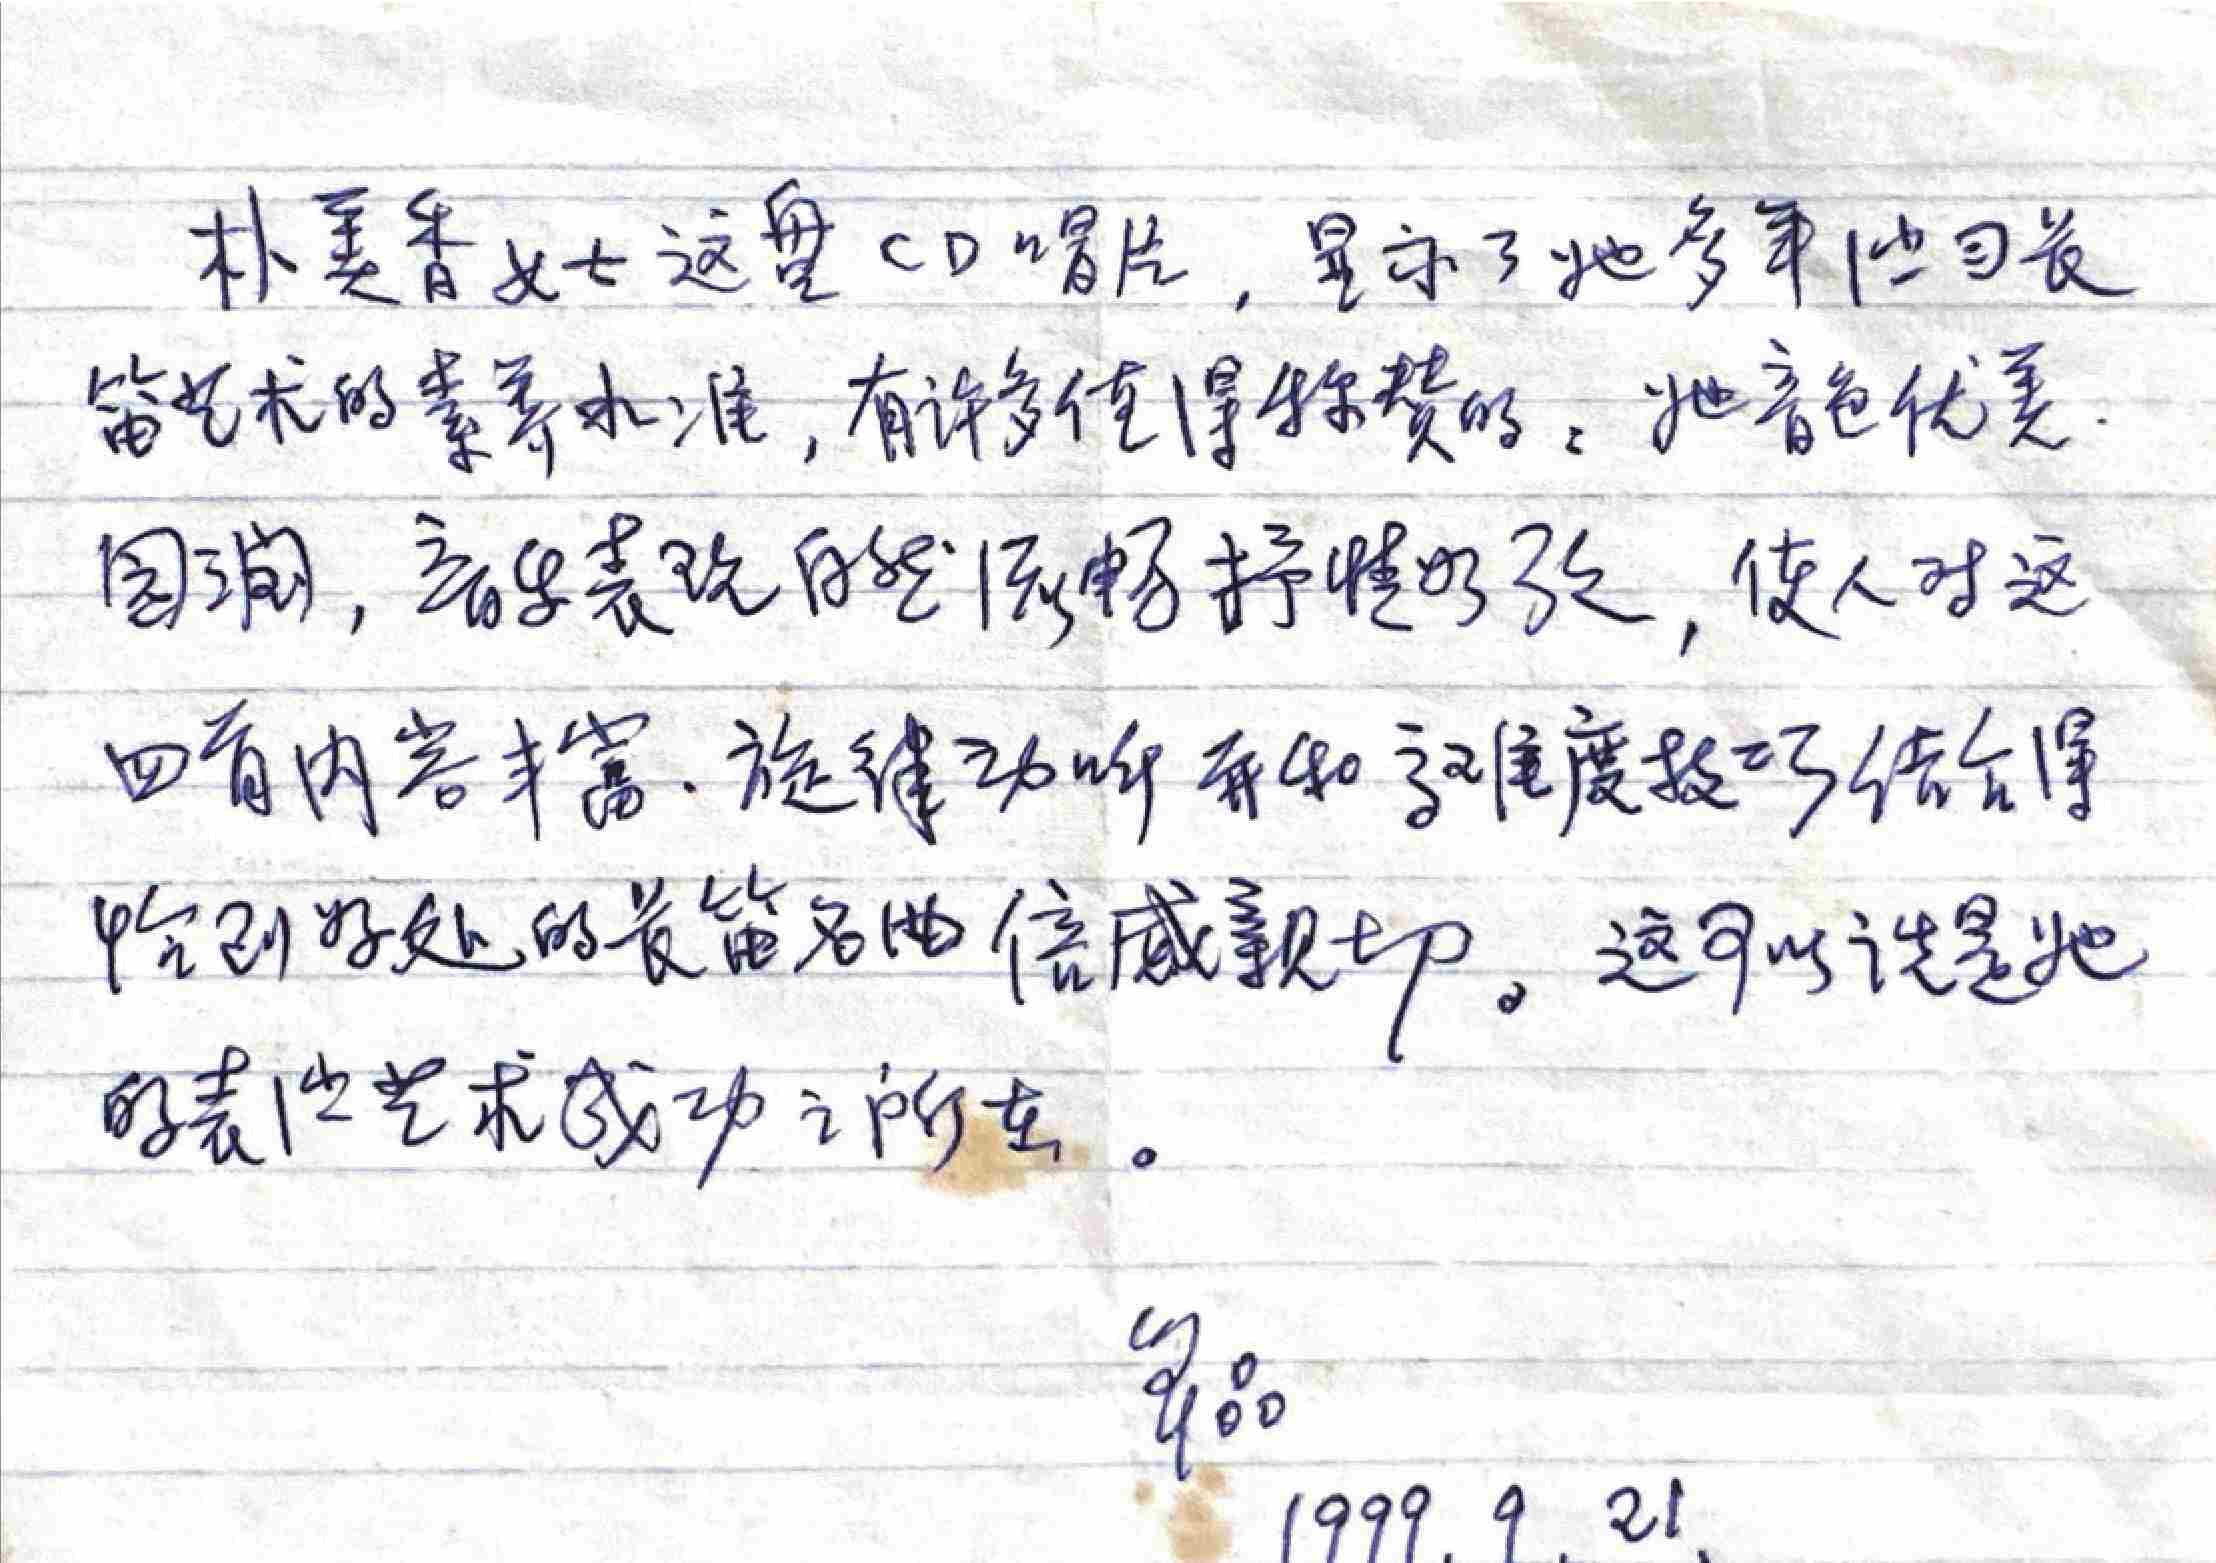 朴美香女士这盘CD唱片，显示了她多年学习长
笛艺术的素养水准，有许多值得称赞的：她音色优美.
圆润，音乐表现自然流畅抒情，使人对这
四首内容丰富.旋律动听并和高难度技巧结合得
恰到好处的长笛名曲倍感亲切。这可以说是她
的表演艺术成功之所在。
1999.9.21.